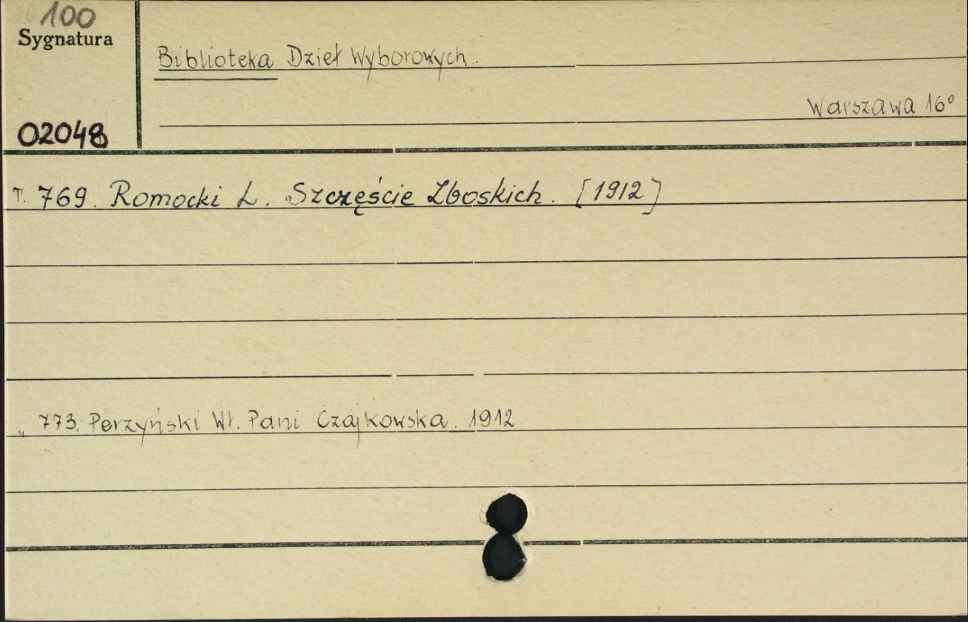 100
Sygnatura
Biblioteka Dzieł Wyborowych.
Warszawa 16°
02048
T. 769. Romocki L. Szczęście Zboskich. [1912]
„ 773. Perzyński Wł. Pani Czajkowska. 1912